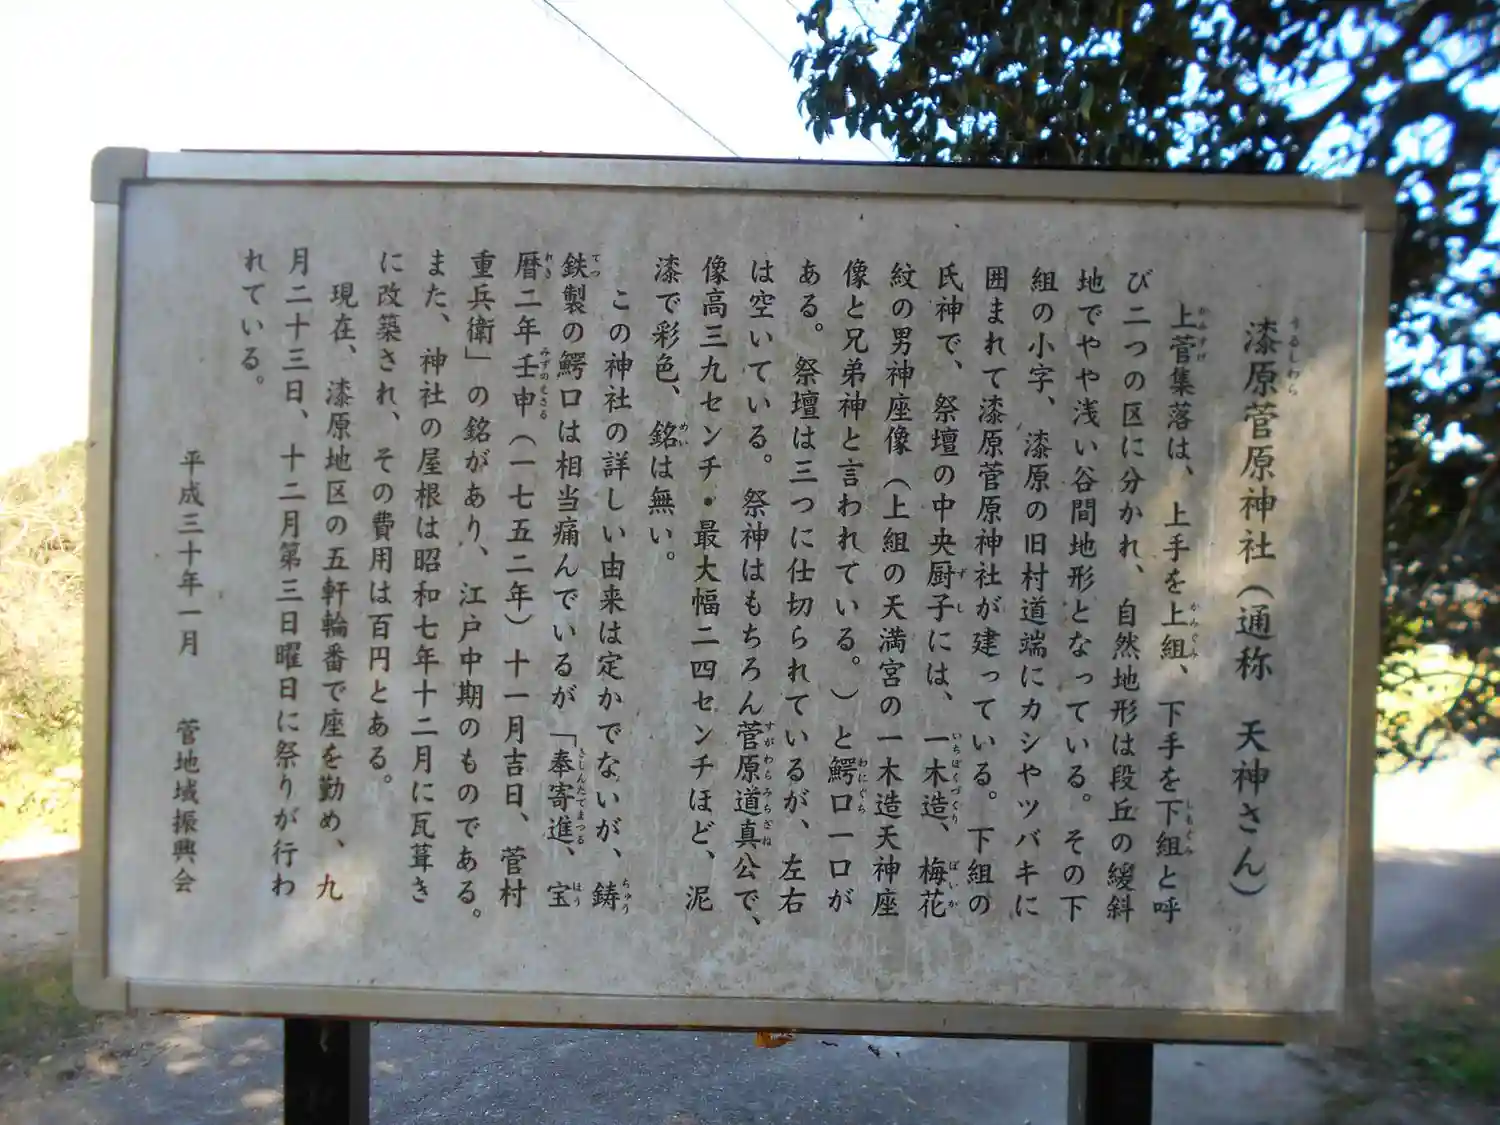 漆原菅原神社（通称　天神さん）
上菅集落は、上手を上組、下手を下組と呼
び二つの区に分かれ、自然地形は段丘の緩斜
地でやや浅い谷間地形となっている。その下
組の小字、漆原の旧村道端にカシやツバキに
囲まれて漆原菅原神社が建っている。下組の
氏神で、祭壇の中央厨子には、一木造、梅花
紋の男神座像（上組の天満宮の一木造天神座
像と兄弟神と言われている。）と鰐口一口が
ある。祭壇は三つに仕切られているが、左右
は空いている。祭神はもちろん菅原道真公で、
像高三九センチ・最大幅二四センチほど、泥
漆で彩色、銘は無い。
この神社の詳しい由来は定かでないが、鋳
鉄製の鰐口は相当痛んでいるが「奉寄進、宝
暦二年壬申（一七五二年）十一月吉日、菅村
重兵衛」の銘があり、江戸中期のものである。
また、神社の屋根は昭和七年十二月に瓦葺き
に改築され、その費用は百円とある。
現在、漆原地区の五軒輪番で座を勤め、九
月二十三日、十二月第三日曜日に祭りが行わ
れている。
平成三十年一月　菅地域振興会